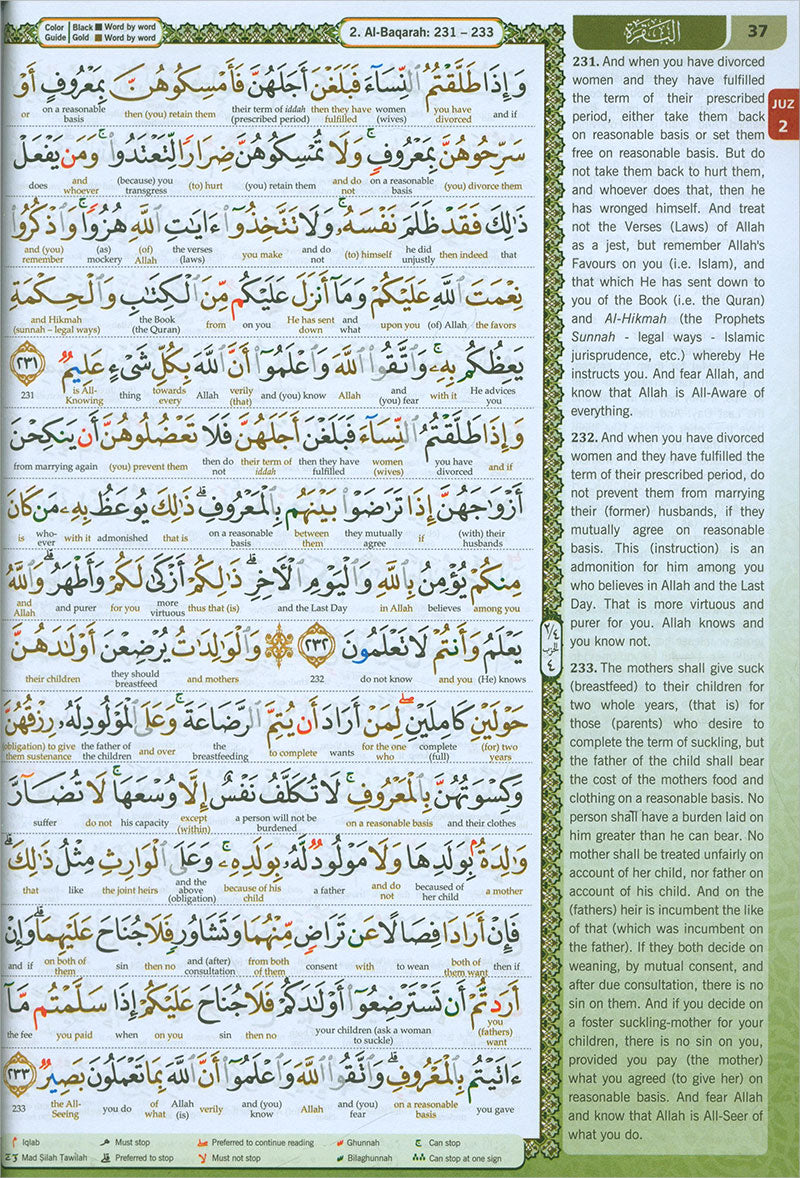 Color Guide | Black ■ Word by word
Gold ■ Word by word
2. Al-Baqarah: 231 – 233
البقرة
37
JUZ 2
وَإِذَا طَلَّقْتُمُ ٱلنِّسَآءَ فَبَلَغْنَ أَجَلَهُنَّ فَأَمْسِكُوهُنَّ بِمَعْرُوفٍ أَوْ
and if
you have divorced
women (wives)
then they have fulfilled
their term of iddah (prescribed period)
then (you) retain them
on a reasonable basis
or
سَرِّحُوهُنَّ بِمَعْرُوفٍ ۚ وَلَا تُمْسِكُوهُنَّ ضِرَارًا لِّتَعْتَدُوا۟ ۚ وَمَن يَفْعَلْ
(you) divorce them
on a reasonable basis
and do not
(you) retain them
(to) hurt
(because) you transgress
and whoever
does
ذَٰلِكَ فَقَدْ ظَلَمَ نَفْسَهُۥ ۚ وَلَا تَتَّخِذُوٓا۟ ءَايَٰتِ ٱللَّهِ هُزُوًا ۚ وَٱذْكُرُوا۟
that
then indeed
he did unjustly
(to) himself
and do not
you make
the verses (laws)
(of) Allah
(as) mockery
and (you) remember
نِعْمَتَ ٱللَّهِ عَلَيْكُمْ وَمَآ أَنزَلَ عَلَيْكُم مِّنَ ٱلْكِتَٰبِ وَٱلْحِكْمَةِ
the favors
(of) Allah
upon you
and what
He has sent down
on you
from
the Book (the Quran)
and Hikmah (sunnah – legal ways)
يَعِظُكُم بِهِۦ ۚ وَٱتَّقُوا۟ ٱللَّهَ وَٱعْلَمُوٓا۟ أَنَّ ٱللَّهَ بِكُلِّ شَىْءٍ عَلِيمٌ ٢٣١
He advices you
with it
and (you) fear
Allah
and (you) know
verily (that)
Allah
towards every
thing
is All-Knowing
231
وَإِذَا طَلَّقْتُمُ ٱلنِّسَآءَ فَبَلَغْنَ أَجَلَهُنَّ فَلَا تَعْضُلُوهُنَّ أَن يَنكِحْنَ
and if
you have divorced
women (wives)
then they have fulfilled
their term of iddah
then do not
(you) prevent them
from marrying again
أَزْوَٰجَهُنَّ إِذَا تَرَٰضَوْا۟ بَيْنَهُم بِٱلْمَعْرُوفِ ۗ ذَٰلِكَ يُوعَظُ بِهِۦ مَن كَانَ
(with) their husbands
if
they mutually agree
between them
on a reasonable basis
that is
admonished
with it
who-ever
is
مِنكُمْ يُؤْمِنُ بِٱللَّهِ وَٱلْيَوْمِ ٱلْءَاخِرِ ۗ ذَٰلِكُمْ أَزْكَىٰ لَكُمْ وَأَطْهَرُ ۗ وَٱللَّهُ
among you
believes
in Allah
and the Last Day
thus that (is)
more virtuous
for you
and purer
and Allah
يَعْلَمُ وَأَنتُمْ لَا تَعْلَمُونَ ٢٣٢ وَٱلْوَٰلِدَٰتُ يُرْضِعْنَ أَوْلَٰدَهُنَّ
(He) knows
and you
do not know
232
and mothers
they should breastfeed
their children
حَوْلَيْنِ كَامِلَيْنِ ۖ لِمَنْ أَرَادَ أَن يُتِمَّ ٱلرَّضَاعَةَ ۚ وَعَلَى ٱلْمَوْلُودِ لَهُۥ رِزْقُهُنَّ
(for) two years
complete (full)
for the one who
wants
to complete
the breastfeeding
and over
the father of the children
(obligation) to give them sustenance
وَكِسْوَتُهُنَّ بِٱلْمَعْرُوفِ ۚ لَا تُكَلَّفُ نَفْسٌ إِلَّا وُسْعَهَا ۚ لَا تُضَآرَّ
and their clothes
on a reasonable basis
a person will not be burdened
except (within)
his capacity
do not
suffer
وَٰلِدَةٌۢ بِوَلَدِهَا وَلَا مَوْلُودٌ لَّهُۥ بِوَلَدِهِۦ ۚ وَعَلَى ٱلْوَارِثِ مِثْلُ ذَٰلِكَ ۗ
a mother
becaused of her child
and do not
a father
because of his child
and the above (obligation)
the joint heirs
like
that
فَإِنْ أَرَادَا فِصَالًا عَن تَرَاضٍ مِّنْهُمَا وَتَشَاوُرٍ فَلَا جُنَاحَ عَلَيْهِمَا ۗ وَإِنْ
then if
both of them want
to wean
with
consent
from both of them
and (after) consultation
then no
sin
on both of them
and if
أَرَدتُّمْ أَن تَسْتَرْضِعُوٓا۟ أَوْلَٰدَكُمْ فَلَا جُنَاحَ عَلَيْكُمْ إِذَا سَلَّمْتُم مَّآ
you (fathers) want
your children (ask a woman to suckle)
then no
sin
on you
when
you paid
the fee
ءَاتَيْتُم بِٱلْمَعْرُوفِ ۗ وَٱتَّقُوا۟ ٱللَّهَ وَٱعْلَمُوٓا۟ أَنَّ ٱللَّهَ بِمَا تَعْمَلُونَ بَصِيرٌ ٢٣٣
you gave
on a reasonable basis
and (you) fear
Allah
and (you) know
verily
Allah (is)
of what
you do
the All-Seeing
233
٢/٤
الحزب
٤
231. And when you have divorced
women and they have fulfilled
the term of their prescribed
period, either take them back
on reasonable basis or set them
free on reasonable basis. But do
not take them back to hurt them,
and whoever does that, then he
has wronged himself. And treat
not the Verses (Laws) of Allah
as a jest, but remember Allah's
Favours on you (i.e. Islam), and
that which He has sent down to
you of the Book (i.e. the Quran)
and Al-Hikmah (the Prophets
Sunnah - legal ways - Islamic
jurisprudence, etc.) whereby He
instructs you. And fear Allah, and
know that Allah is All-Aware of
everything.
232. And when you have divorced
women and they have fulfilled the
term of their prescribed period, do
not prevent them from marrying
their (former) husbands, if they
mutually agree on reasonable
basis. This (instruction) is an
admonition for him among you
who believes in Allah and the Last
Day. That is more virtuous and
purer for you. Allah knows and
you know not.
233. The mothers shall give suck
(breastfeed) to their children for
two whole years, (that is) for
those (parents) who desire to
complete the term of suckling, but
the father of the child shall bear
the cost of the mothers food and
clothing on a reasonable basis. No
person shall have a burden laid on
him greater than he can bear. No
mother shall be treated unfairly on
account of her child, nor father on
account of his child. And on the
(fathers) heir is incumbent the like
of that (which was incumbent on
the father). If they both decide on
weaning, by mutual consent, and
after due consultation, there is no
sin on them. And if you decide on
a foster suckling-mother for your
children, there is no sin on you,
provided you pay (the mother)
what you agreed (to give her) on
reasonable basis. And fear Allah
and know that Allah is All-Seer of
what you do.
Iqlab
Must stop
Preferred to continue reading
Ghunnah
Can stop
Mad Ṣilah Ṭawīlah
Preferred to stop
Must not stop
Bilaghunnah
Can stop at one sign